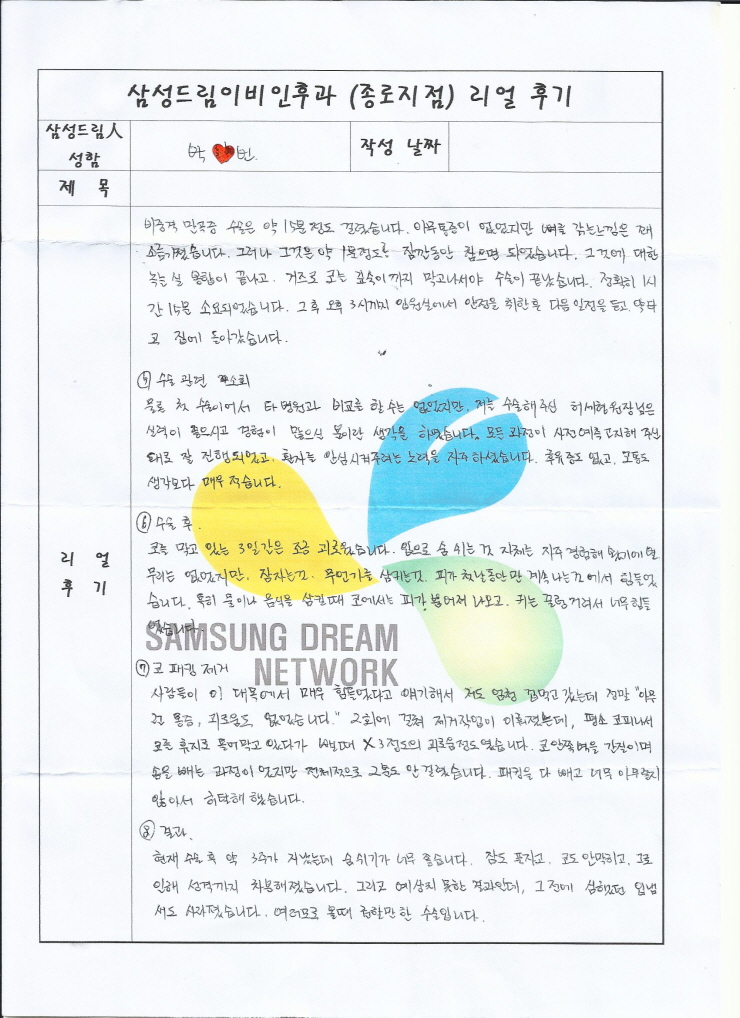 삼성드림이비인후과 (종로지점) 리얼 후기
삼성드림人
성함
박 ♥ 빈.
작성 날짜
제 목
리 얼
후 기
비중격 만곡증 수술은 약 15분 정도 걸렸습니다. 아무 통증이 없었지만 뼈를 깎는 느낌은 꽤
소름끼쳤습니다. 그러나 그것은 약 1분정도로 잠깐동안 참으면 되었습니다. 그것에 대한
녹는실 봉합이 끝나고, 거즈로 코를 깊숙이까지 막고나서야 수술이 끝났습니다. 정확히 1시
간 15분 소요되었습니다. 그 후 오후 3시까지 입원실에서 안정을 취한 후 다음 일정을 듣고,
고 집에 돌아갔습니다.
⑤ 수술 관련 소회
물론 첫 수술이어서 타 병원과 비교를 할 수는 없었지만, 저를 수술해주신 허세형 원장님은
실력이 좋으시고 경험이 많으신 분이란 생각을 하였습니다. 모든 과정이 사전 예측 고지해 주신
대로 잘 진행되었고, 환자를 안심시켜주려는 노력을 자주 하셨습니다. 후유증도 없고, 고통도
생각보다 매우 적습니다.
⑥ 수술 후.
코를 막고 있는 3일간은 조금 괴로웠습니다. 입으로 숨 쉬는 것 자체는 자주 경험해 왔기에
무리는 없었지만, 잠자는것, 무언가를 삼키는것, 피가 첫날동안만 계속 나는것에서 힘들었
습니다. 특히 물이나 음식을 삼킬때 코에서는 피가 뿜어져 나오고, 귀는 펄렁거려서 너무 힘들
었습니다.
SAMSUNG DREAM
NETWORK
⑦ 코 패킹 제거
사람들이 이 대목에서 매우 힘들었다고 얘기해서 저도 엄청 겁먹고 갔는데 정말 "아무
런 통증, 괴로움도 없었습니다." 2회에 걸쳐 제거작업이 이뤄졌는데, 평소 코피나서
코를 휴지로 틀어막고 있다가 뺄때 X 3정도의 괴로움정도였습니다. 코 안쪽 벽을 간질이며
솜을 빼는 과정이 있었지만 전체적으로 2분도 안 걸렸습니다. 패킹을 다 빼고 너무 아무렇지
않아서 허탈해 했습니다.
⑧ 결과.
현재 수술 후 약 3주가 지났는데 숨쉬기가 너무 좋습니다. 잠도 푹자고, 코도 안막히고, 그로
인해 성격까지 차분해졌습니다. 그리고 예상치 못한 결과인데, 그 전에 심했던 입냄
새도 사라졌습니다. 여러모로 볼때 할만한 수술입니다.